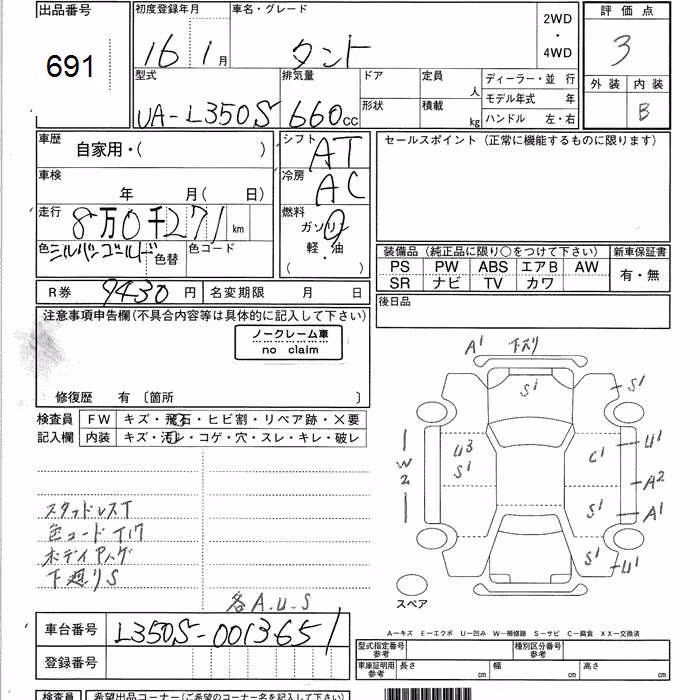 出品番号 初度登録年月 車名・グレード 2WD ・ 4WD 評価点
691 16 1月 タント 3
型式 排気量 ドア 定員 人 ディーラー・並 行 外装 内装
UA-L350S 660cc 形状 積載 kg モデル年式 年 B
ハンドル 左・右
車歴 自家用・( ) シフト AT セールスポイント (正常に機能するものに限ります)
車検 年 月( 日) 冷房 AC
走行 8万0千271km 燃料 ガソリン
色 シルバンゴールド 色替 色コード 軽・油 ( )
装備品 (純正品に限り○をつけて下さい) 新車保証書
PS PW ABS エアB AW 有・無
SR ナビ TV カワ
R券 9430円 名変期限 月 日 後日品
注意事項申告欄(不具合内容等は具体的に記入して下さい)
ノークレーム車
no claim
A1 下スリ
修復歴 有 〔箇所 〕
S1 S1
検査員 FW キズ・飛石・ヒビ割・リペア跡・×要
記入欄 内装 キズ・汚レ・コゲ・穴・スレ・キレ・破レ
U3 C1 U1
W2 S1 A2
スタッドレスT S1 A1
色コードT17
ボディアング S1 U1
下廻りS
スペア
各A.U.S
車台番号 L350S-0013651
A-キズ E-エクボ U-凹み W-補修跡 S-サビ C-腐食 XX-交換済
登録番号 型式指定番号 参考 種別区分番号 参考
車庫証明用 参考 長さ cm 幅 cm 高さ cm
検査員 希望出品コーナー(ご希望のコーナー名を記入して下さい)